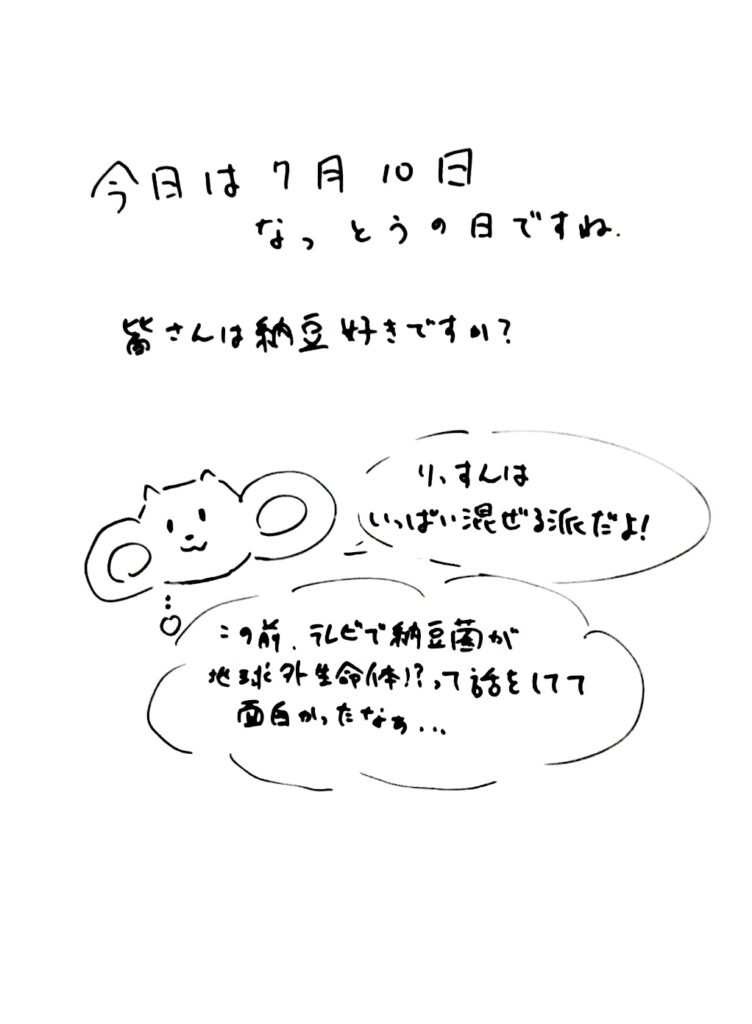 今日は7月10日
なっとうの日ですね.
皆さんは納豆好きですか?
りっすんは
いっぱい混ぜる派だよ!
この前、テレビで納豆菌が
地球外生命体!?って話をしてて
面白かったなぁ...